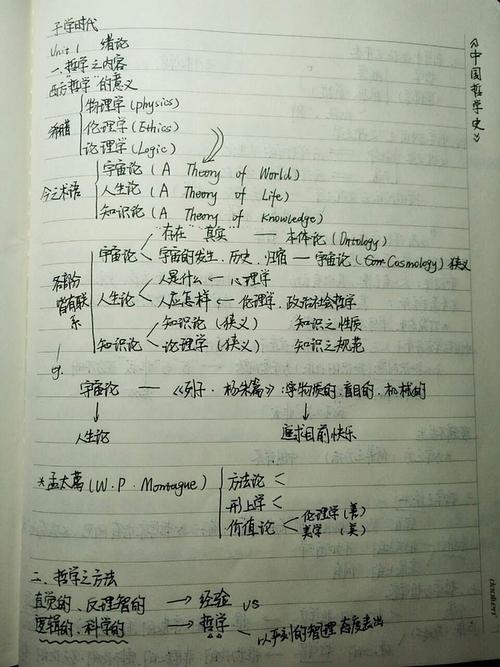 《中国哲学史》
子学时代
Unit 1 绪论
一、哲学之内容
"西方哲学"的意义
希腊
物理学(physics)
伦理学(Ethics)
论理学(Logic)
今之术语
宇宙论(A Theory of World)
人生论(A Theory of Life)
知识论(A Theory of Knowledge)
各部份皆有联系
宇宙论
"存在""真实" — 本体论(Ontology)
宇宙的发生、历史、归宿 — 宇宙论(Cosmology)狭义
人生论
人是什么 ← 心理学
人应怎样 ← 伦理学、政治社会哲学
知识论
知识论(狭义) 知识之性质
论理学(狭义) 知识之规范
eg.
宇宙论 — 《列子·杨朱篇》:宇物质的、盲目的、机械的
↓ ↓
人生论 追求目前快乐
*孟太葛(W.P.Montague)
方法论 <
形上学 <
价值论 <
伦理学(善)
美学(美)
二、哲学之方法
直觉的、反理智的 → 经验 VS
逻辑的、科学的 → 哲学 — 以严刻的理智态度表出